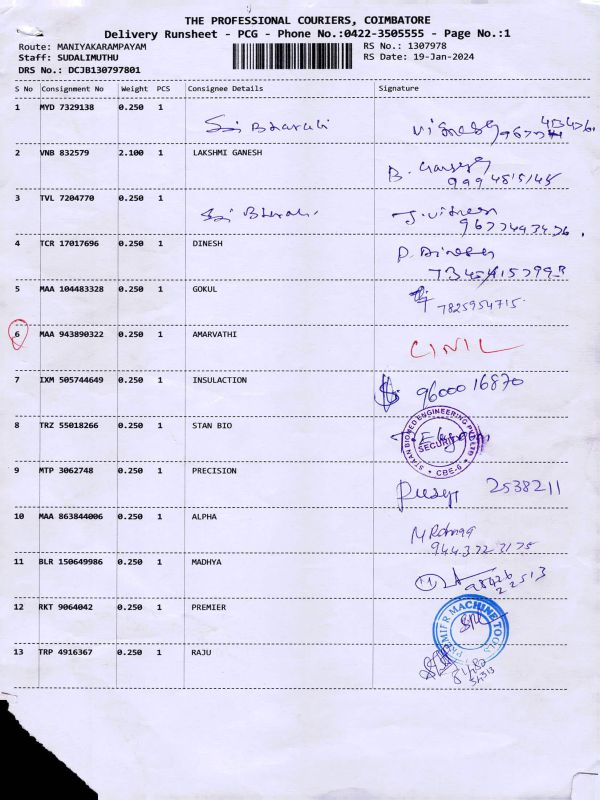 THE PROFESSIONAL COURIERS, COIMBATORE
Delivery Runsheet - PCG - Phone No.:0422-3505555 - Page No.:1
Route: MANIYAKARAMPAYAM RS No.: 1307978
Staff: SUDALIMUTHU RS Date: 19-Jan-2024
DRS No.: DCJB130797801
S No Consignment No Weight PCS Consignee Details Signature
1 MYD 7329138 0.250 1
Sri Bharati
2 VNB 832579 2.100 1 LAKSHMI GANESH
B.
9994815145
3 TVL 7204770 0.250 1
Sri Bharati.
J.
9677493436.
4 TCR 17017696 0.250 1 DINESH
D. Dinesh
5 MAA 104483328 0.250 1 GOKUL
7825954715
6 MAA 943890322 0.250 1 AMARVATHI CINIL
7 IXM 505744649 0.250 1 INSULACTION 9600016870
8 TRZ 55018266 0.250 1 STAN BIO
STAAN BIOMED ENGINEERING PVT LTD
SECURITY
CBE-6
9 MTP 3062748 0.250 1 PRECISION
2538211
10 MAA 863844006 0.250 1 ALPHA
9443723175
11 BLR 150649986 0.250 1 MADHYA
98426
22513
12 RKT 9064042 0.250 1 PREMIER
PREMIER MACHINE TOOLS
13 TRP 4916367 0.250 1 RAJU